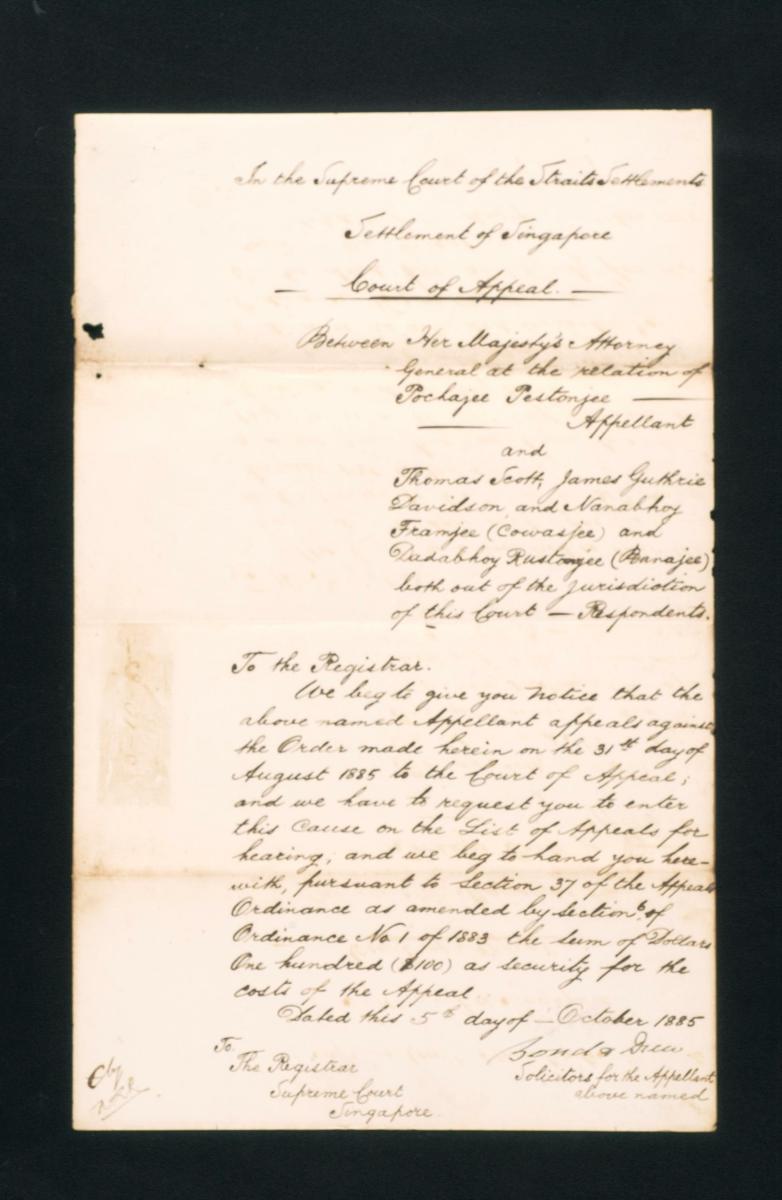 In the Supreme Court of the Straits Settlements
Settlement of Singapore
— Court of Appeal. —
Between Her Majesty's Attorney
General at the relation of
Pochajee Pestonjee —
— Appellant
and
Thomas Scott, James Guthrie
Davidson, and Nanabhoy
Framjee (Cowasjee) and
Dadabhoy Rustomjee (Banajee)
both out of the jurisdiction
of this Court — Respondents.
To the Registrar.
We beg to give you notice that the
above named Appellant appeals against
the Order made herein on the 31st day of
August 1885 to the Court of Appeal;
and we have to request you to enter
this Cause on the List of Appeals for
hearing; and we beg to hand you here-
with, pursuant to Section 37 of the Appeals
Ordinance as amended by section 6 of
Ordinance No. 1 of 1883 the sum of Dollars
One hundred ($100) as security for the
costs of the Appeal
Dated this 5th day of — October 1885
Bond & Drew
Solicitors for the Appellant
above named
To
The Registrar
Supreme Court
Singapore.